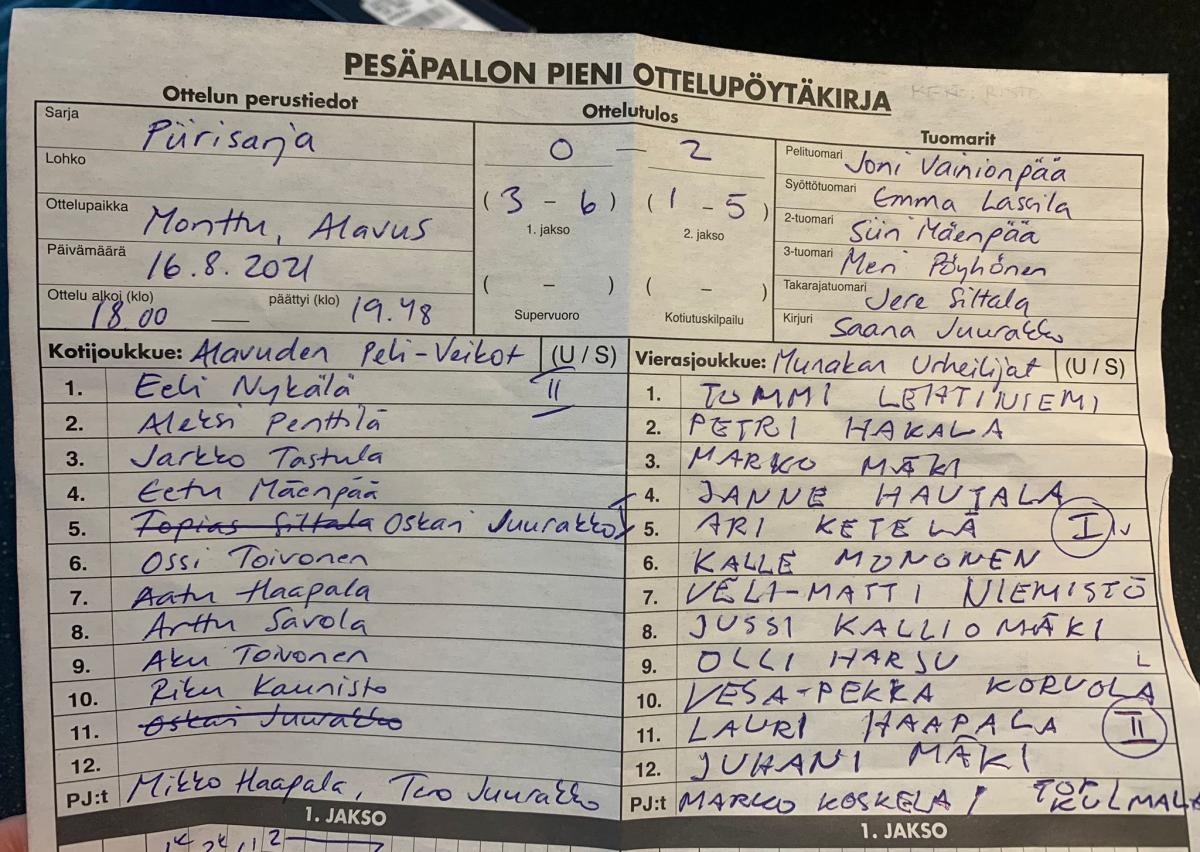 PESÄPALLON PIENI OTTELUPÖYTÄKIRJA
Ottelun perustiedot
Sarja Piirisarja
Lohko
Ottelupaikka Monttu, Alavus
Päivämäärä 16.8.2021
Ottelu alkoi (klo) 18.00 — päättyi (klo) 19.48
Ottelutulos
0 — 2
(3 - 6) (1 - 5)
1. jakso 2. jakso
( - ) ( - )
Supervuoro Kotiutuskilpailu
Tuomarit
Pelituomari Joni Vainionpää
Syöttötuomari Emma Lassila
2-tuomari Siiri Mäenpää
3-tuomari Meri Pöyhönen
Takarajatuomari Jere Siltala
Kirjuri Saana Juurakko
Kotijoukkue: Alavuden Peli-Veikot (U / S)
1. Eeli Nykälä II
2. Aleksi Penttilä
3. Jarkko Tastula
4. Eetu Mäenpää
5. Topias Siltala Oskari Juurakko
6. Ossi Toivonen
7. Aatu Haapala
8. Arttu Savola
9. Aku Toivonen
10. Riku Kaunisto
11. Oskari Juurakko
12.
PJ:t Mikko Haapala, Tero Juurakko
1. JAKSO
Vierasjoukkue: Munakan Urheilijat (U / S)
1. TOMMI LEHTINIEMI
2. PETRI HAKALA
3. MARKO MÄKI
4. JANNE HAUTALA
5. ARI KETELÄ I
6. KALLE MONONEN
7. VELI-MATTI NIEMISTÖ
8. JUSSI KALLIOMÄKI
9. OLLI HARJU L
10. VESA-PEKKA KORVOLA
11. LAURI HAAPALA II
12. JUHANI MÄKI
PJ:t MARKO KOSKELA /
1. JAKSO